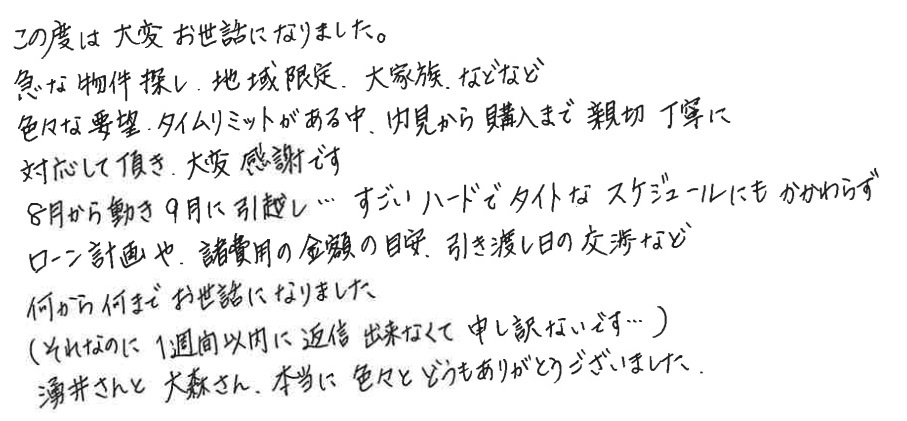 この度は 大変 お世話になりました。
急な 物件 探し、地域 限定、大家族、などなど
色々な 要望、タイムリミットがある中、内見から 購入まで 親切 丁寧に
対応して 頂き、大変 感謝です
8月から動き 9月に 引越し… すごい ハードで タイトな スケジュールにも かかわらず
ローン計画や、諸費用の金額の目安、引き渡し日の交渉など
何から何まで お世話になりました
(それなのに 1週間以内に 返信 出来なくて 申し訳ないです…)
湧井さんと 大森さん、本当に 色々と どうもありがとうございました、